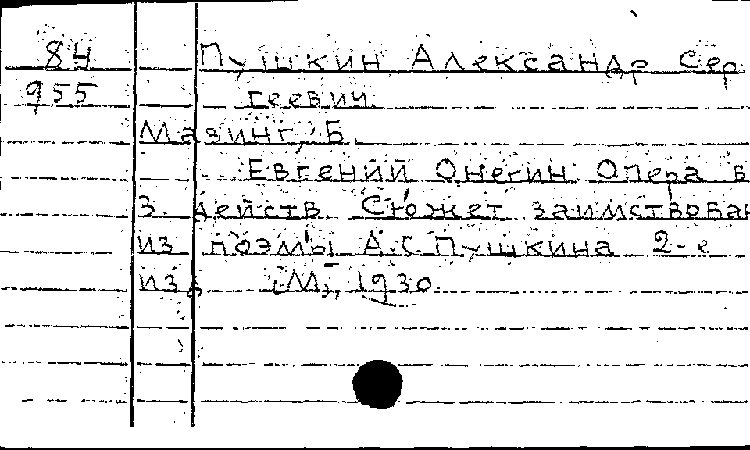 84 Пушкин Александр Сер
955 геевич.
Мазинг, Б.
Евгений Онегин Опера в
3 действ. Сюжет заимствован
из поэмы А.С. Пушкина 2-е
изд [М], 1930.